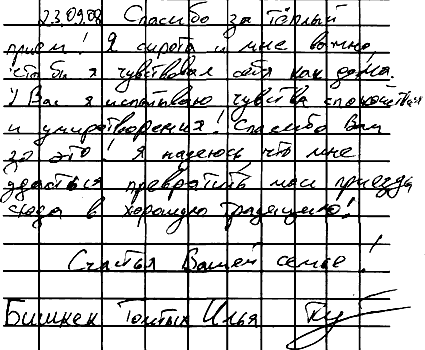 23.09.08 Спасибо за тёплый
прием! Я сирота и мне важно,
что бы я чувствовал себя как дома.
У Вас я испытываю чувства спокойствия
и умиротворения! Спасибо Вам
за это! Я надеюсь, что мне
удасться превратить мои приезды
сюда в хорошую традицию!
Счастья Вашей семье!
Бишкек Илья